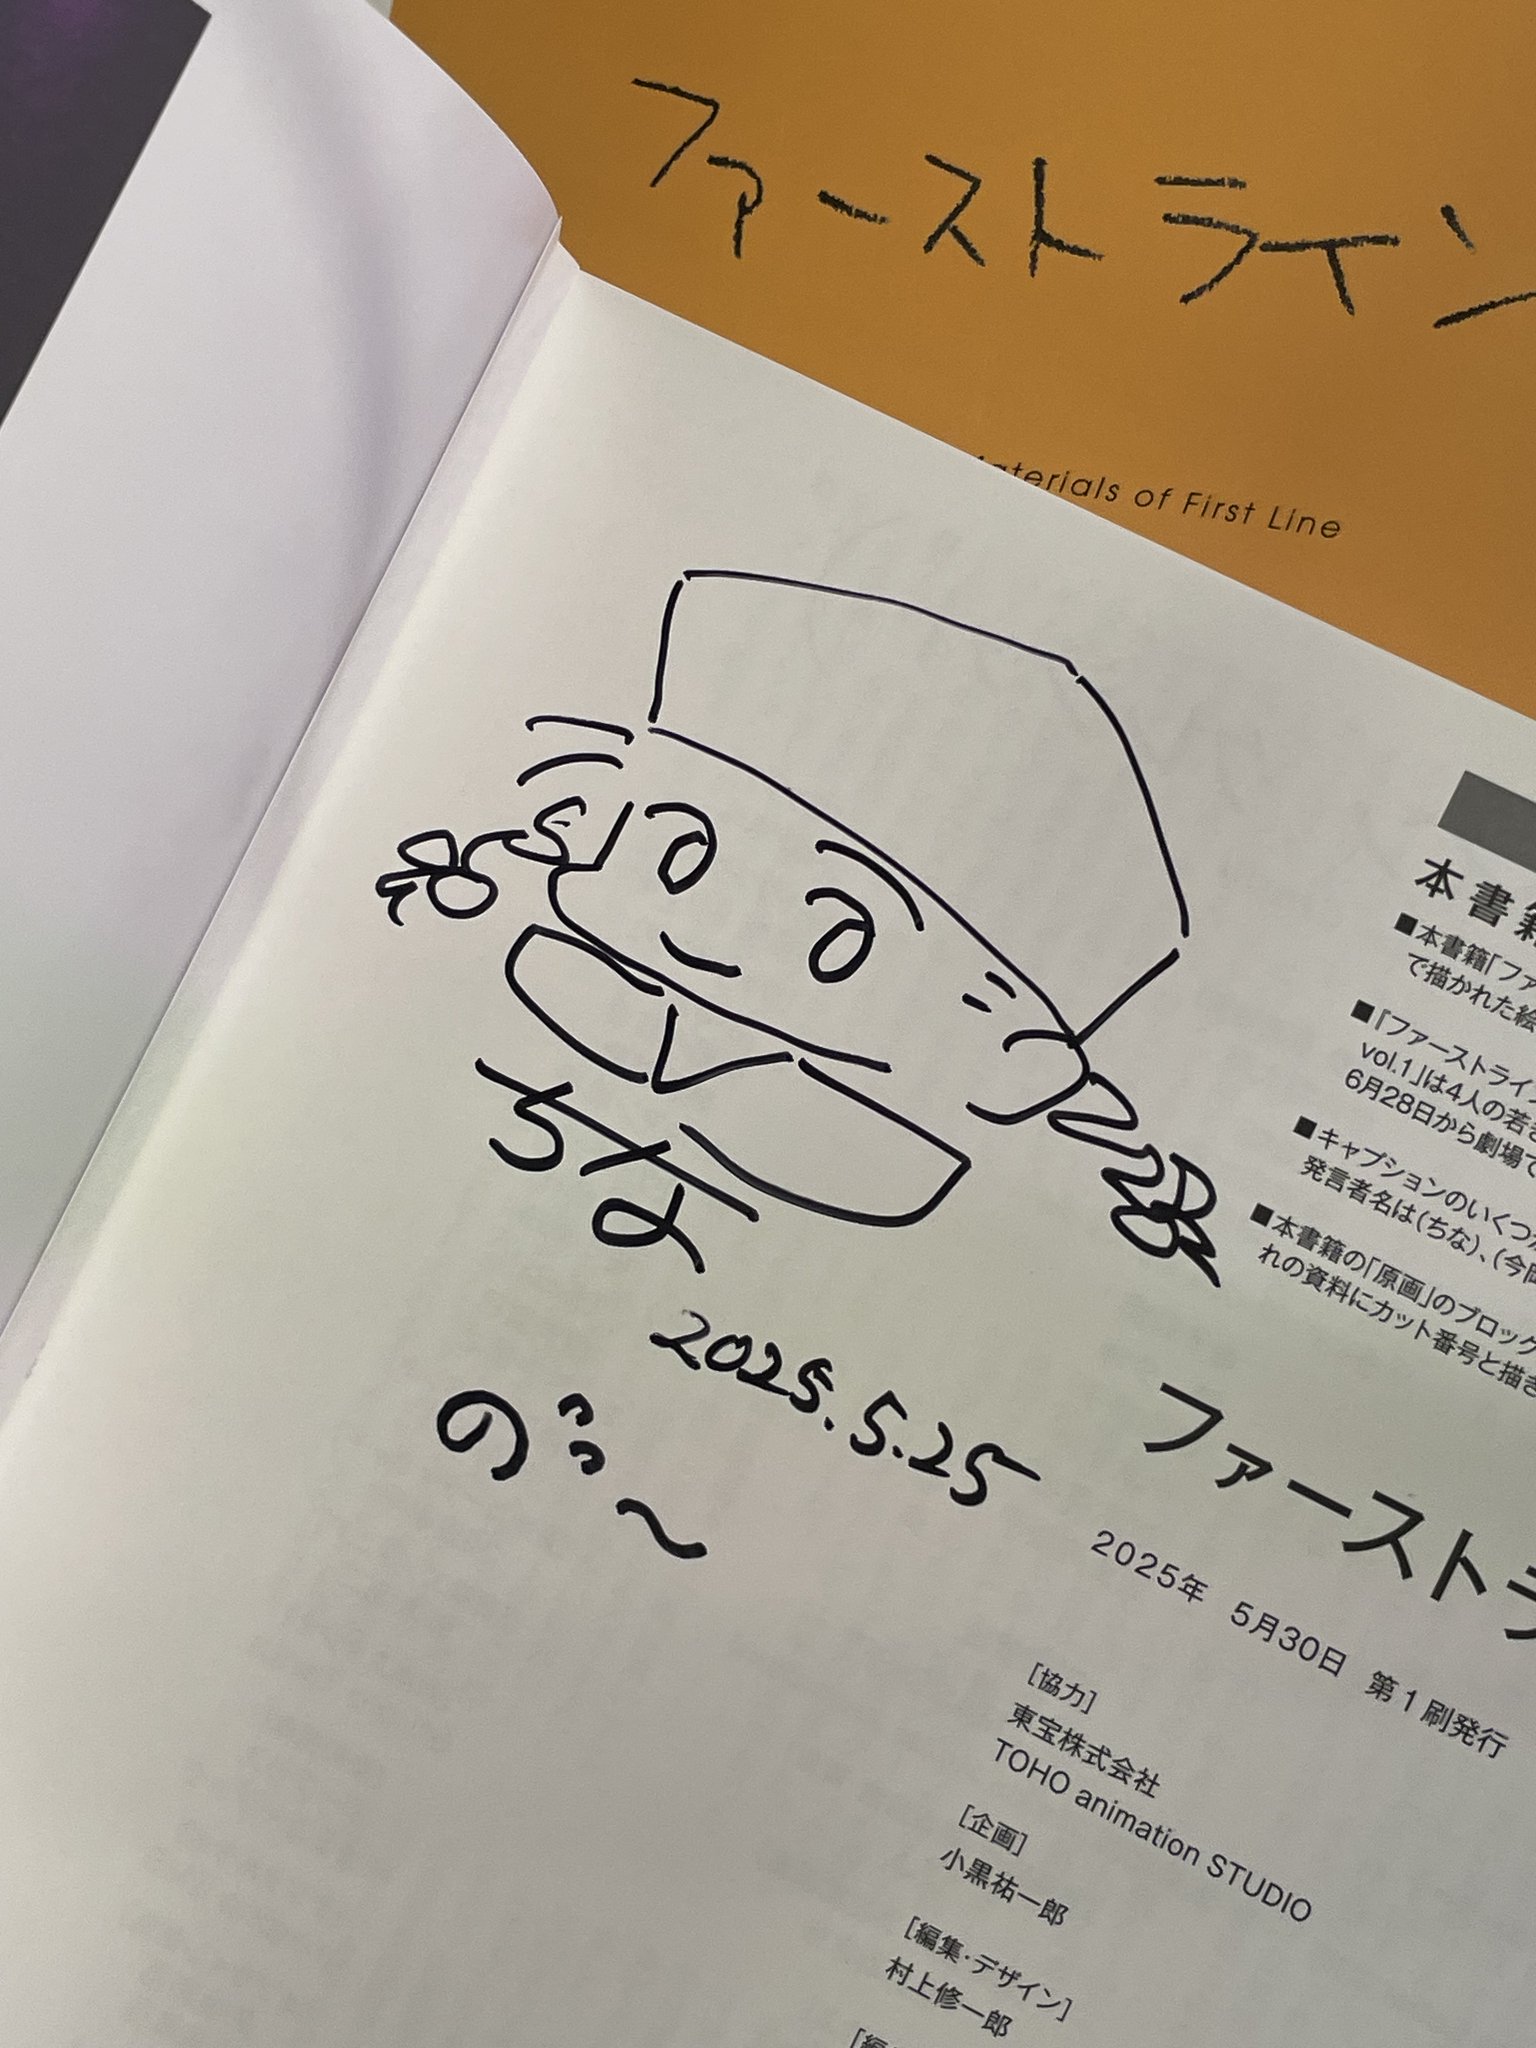 ファーストライン
Materials of First Line
ちな
2025.5.25
のび〜
本書籍
■本書籍「ファ
で描かれた絵
■「ファーストライン
vol.1」は4人の若き
6月28日から劇場で
■キャプションのいくつか
発言者名は(ちな)、(今
■本書籍の「原画」のブロック
れの資料にカット番号と描き
ファーストラ
2025年 5月30日 第1刷発行
[協力]
東宝株式会社
TOHO animation STUDIO
[企画]
小黒祐一郎
[編集・デザイン]
村上修一郎